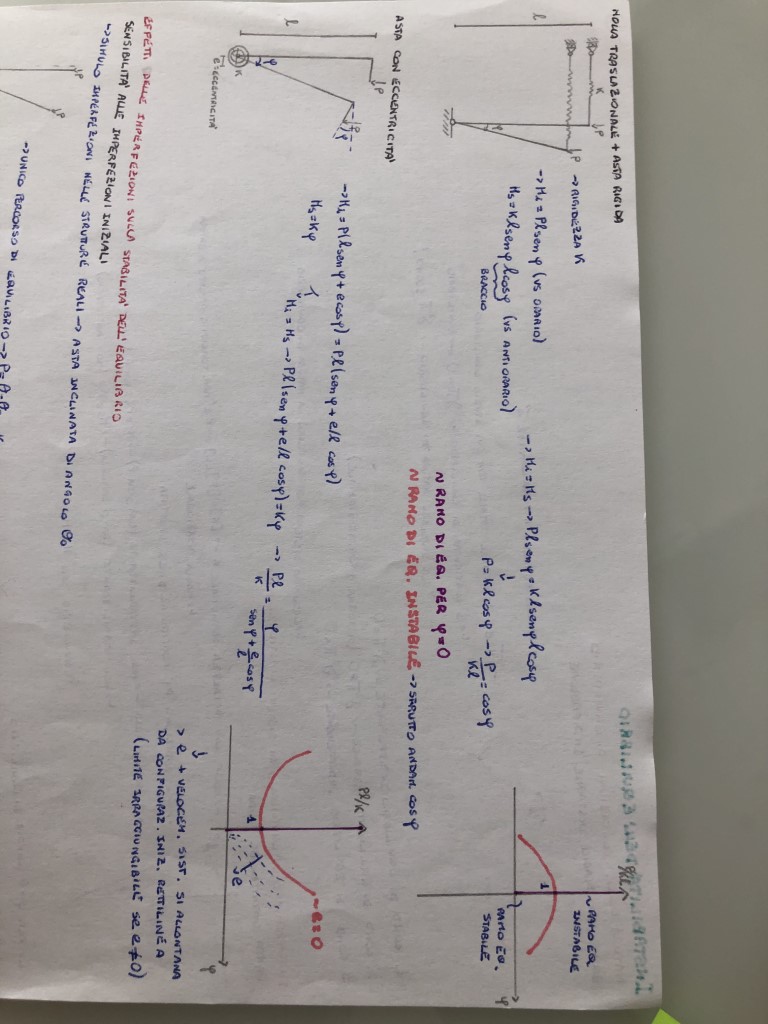 MOLLA TRASLAZIONALE + ASTA RIGIDA
l
K
P
P
φ
→ RIGIDEZZA K
→ Mi = Plsenφ (VS ORARIO)
Ms = Klsenφ lcosφ (VS ANTIORARIO)
BRACCIO
→ Mi = Ms → Plsenφ = Klsenφ lcosφ
↓
P = Klcosφ → P/Kl = cosφ
~ RAMO DI EQ. PER φ=0
~ RAMO DI EQ. INSTABILE → SFRUTTO ANDAM. cosφ
P/Kl
1
~ RAMO EQ INSTABILE
RAMO EQ. STABILE
φ
ASTA CON ECCENTRICITA'
l
P
φ
K
e = ECCENTRICITA'
→ Mi = P(lsenφ + ecosφ) = Pl(senφ + e/l cosφ)
Ms = Kφ
Mi = Ms → Pl(senφ + e/l cosφ) = Kφ → Pl/K = φ/(senφ + e/l cosφ)
Pl/K
1
~ e=0
e
φ
↓
> e + VELOCEM. SIST. SI ALLONTANA
DA CONFIGURAZ. INIZ. RETTILINEA
(LIMITE IRRAGGIUNGIBILE SE e≠0)
EFFETTI DELLE IMPERFEZIONI SULLA STABILITA' DELL'EQUILIBRIO
SENSIBILITA' ALLE IMPERFEZIONI INIZIALI
→ SIMULO IMPERFEZIONI NELLE STRUTTURE REALI → ASTA INCLINATA DI ANGOLO θ₀
P
P
→ UNICO PERCORSO DI EQUILIBRIO →